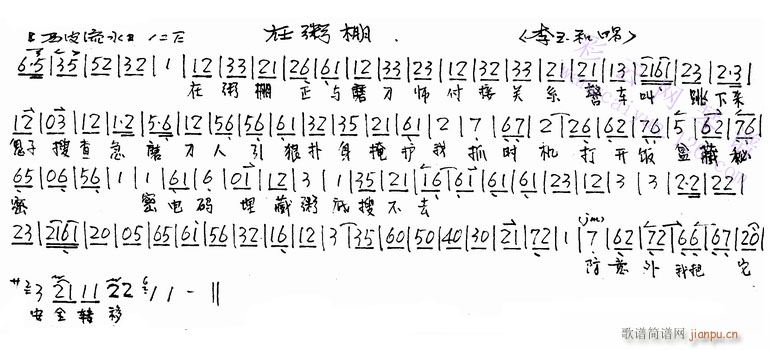 【西皮流水】 1/2 在粥棚 《李玉和唱》
6·5|35|52|32|1|12|33|21|26|61|12|33|23|12|32|33|21|21|13|2161|23|2·3|
在粥棚正与磨刀师付接关系警车叫跳下来
12|03|12|1·2|5·6|12|56|56|61|32|35|21|61|2|7|67|2|26|62|76|5|62|76|
鬼子搜查急磨刀人引狼扑身掩护我抓时机打开饭盒藏秘
65|06|56|1|1|61|6|01|12|3|1|35|21|16|61|61|61|23|12|3|3|2·2|22|
密 密电码埋藏粥底搜不去
23|2161|20|05|65|61|56|32|16|12|3|35|60|50|40|30|21|72|1|7|62|72|66|67|20|
防意外我把它
サ3 21 11 22 1 1 - ||
安全转移
歌谱简谱网
jianpu.cn